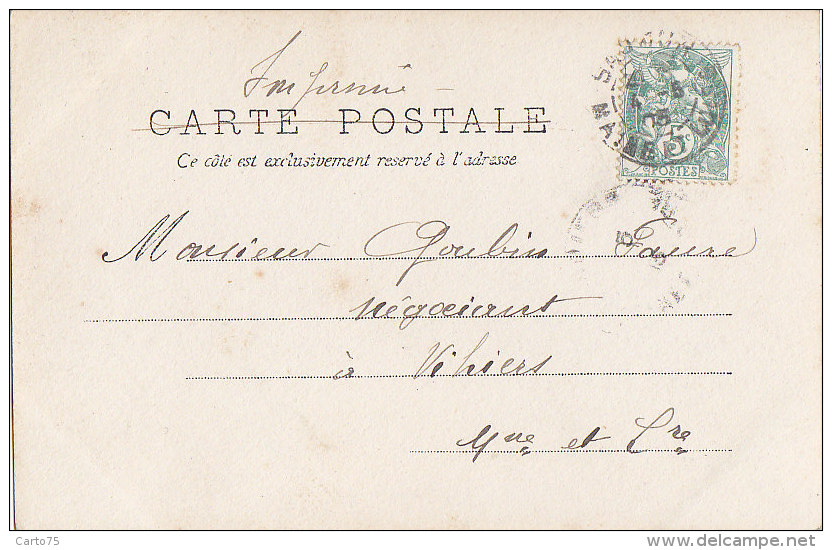 Imprimé
CARTE POSTALE
Ce côté est exclusivement reservé à l'adresse
5c
POSTES
MAINE
Monsieur Goubin Faure
Négociant
à Vihiers
Mne et Lre
Carto75
www.delcampe.net